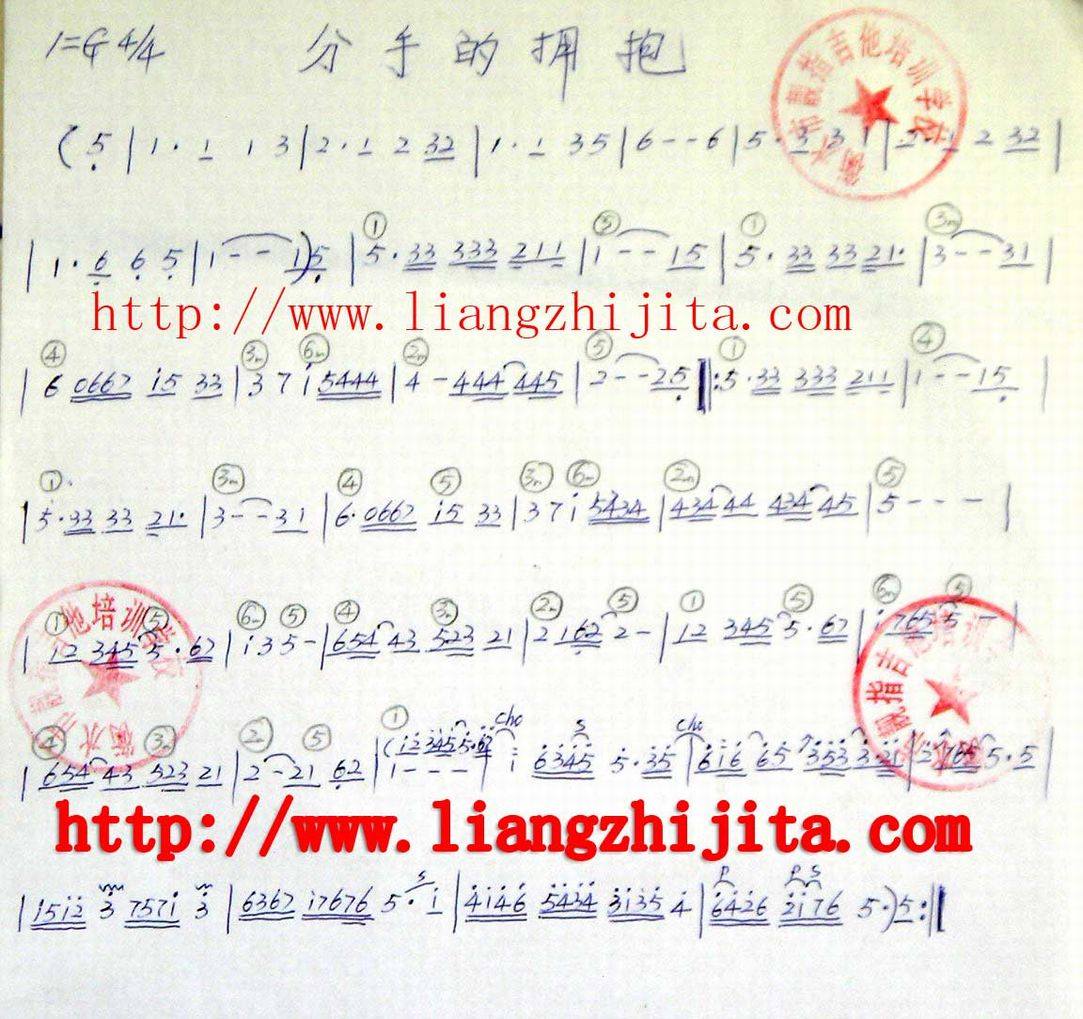 1=G 4/4 分手的拥抱
衡水市靓指吉他培训学校
(5̣ | 1 · 1 1 3 | 2 · 1 2 32 | 1 · 1 35 | 6 - - 6 | 5 · 3 3 1 | 2 · 1 2 32 |
① ⑤ ① ③m
| 1 · 6̣ 6̣ 5̣ | 1 - - 1)5̣ | 5 · 33 333 211 | 1 - - 15 | 5 · 33 33 21· | 3 - - 31 |
http://www.liangzhijita.com
④ ③m ⑥m ②m ⑤ ① ④
| 6 0667 i5 33 | 3 7 i 5444 | 4 - 444 445 | 2 - - 25̣ ‖: 5 · 33 333 211 | 1 - - 15̣ |
① ③m ④ ⑤ ③m ⑥m ②m ⑤
| 5 · 33 33 21· | 3 - - 31 | 6 · 0667 i5 33 | 3 7 i 5434 | 434 44 434 45 | 5 - - - |
① ⑤ ⑥m ⑤ ④ ③m ②m ⑤ ① ⑤ ⑥m ⑤
| 12 345 5 · 67 | i 3 5 - | 654 43 523 21 | 2 16̣2 2 - | 12 345 5 · 67 | i 765 5 - |
④ ③m ②m ⑤ ① cho S cho
| 654 43 523 21 | 2 - 21 6̣2 | 1 - - - |
http://www.liangzhijita.com
S P P S
| 15i2 3 757i 3 | 6367 i7676 5 · i | 4i46 5434 3i35 4 | 6426 2i76 5 ·) 5 :‖